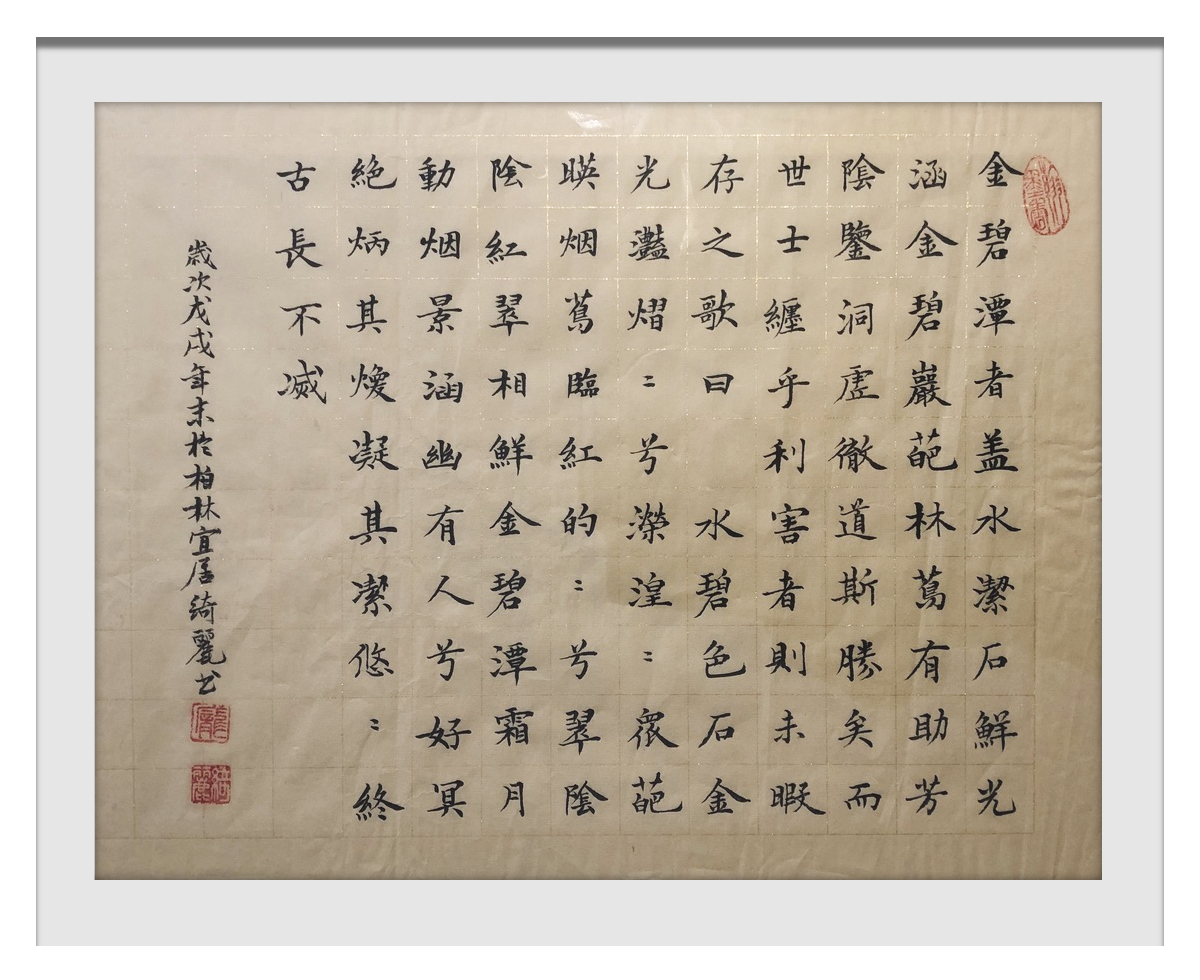 金碧潭者盖水潔石鮮光
涵金碧巖葩林蔦有助芳
陰鑒洞虛徹道斯勝矣而
世士纏乎利害者則未暇
存之歌曰 水碧色石金
光灩熠〻兮濴湟〻衆葩
暎烟蔦臨紅的〻兮翠陰
陰紅翠相鮮金碧潭霜月
動烟景涵幽有人兮好冥
絕炳其煥凝其潔悠〻終
古長不滅
歲次戊戌年末於柏林宜居綺麗书